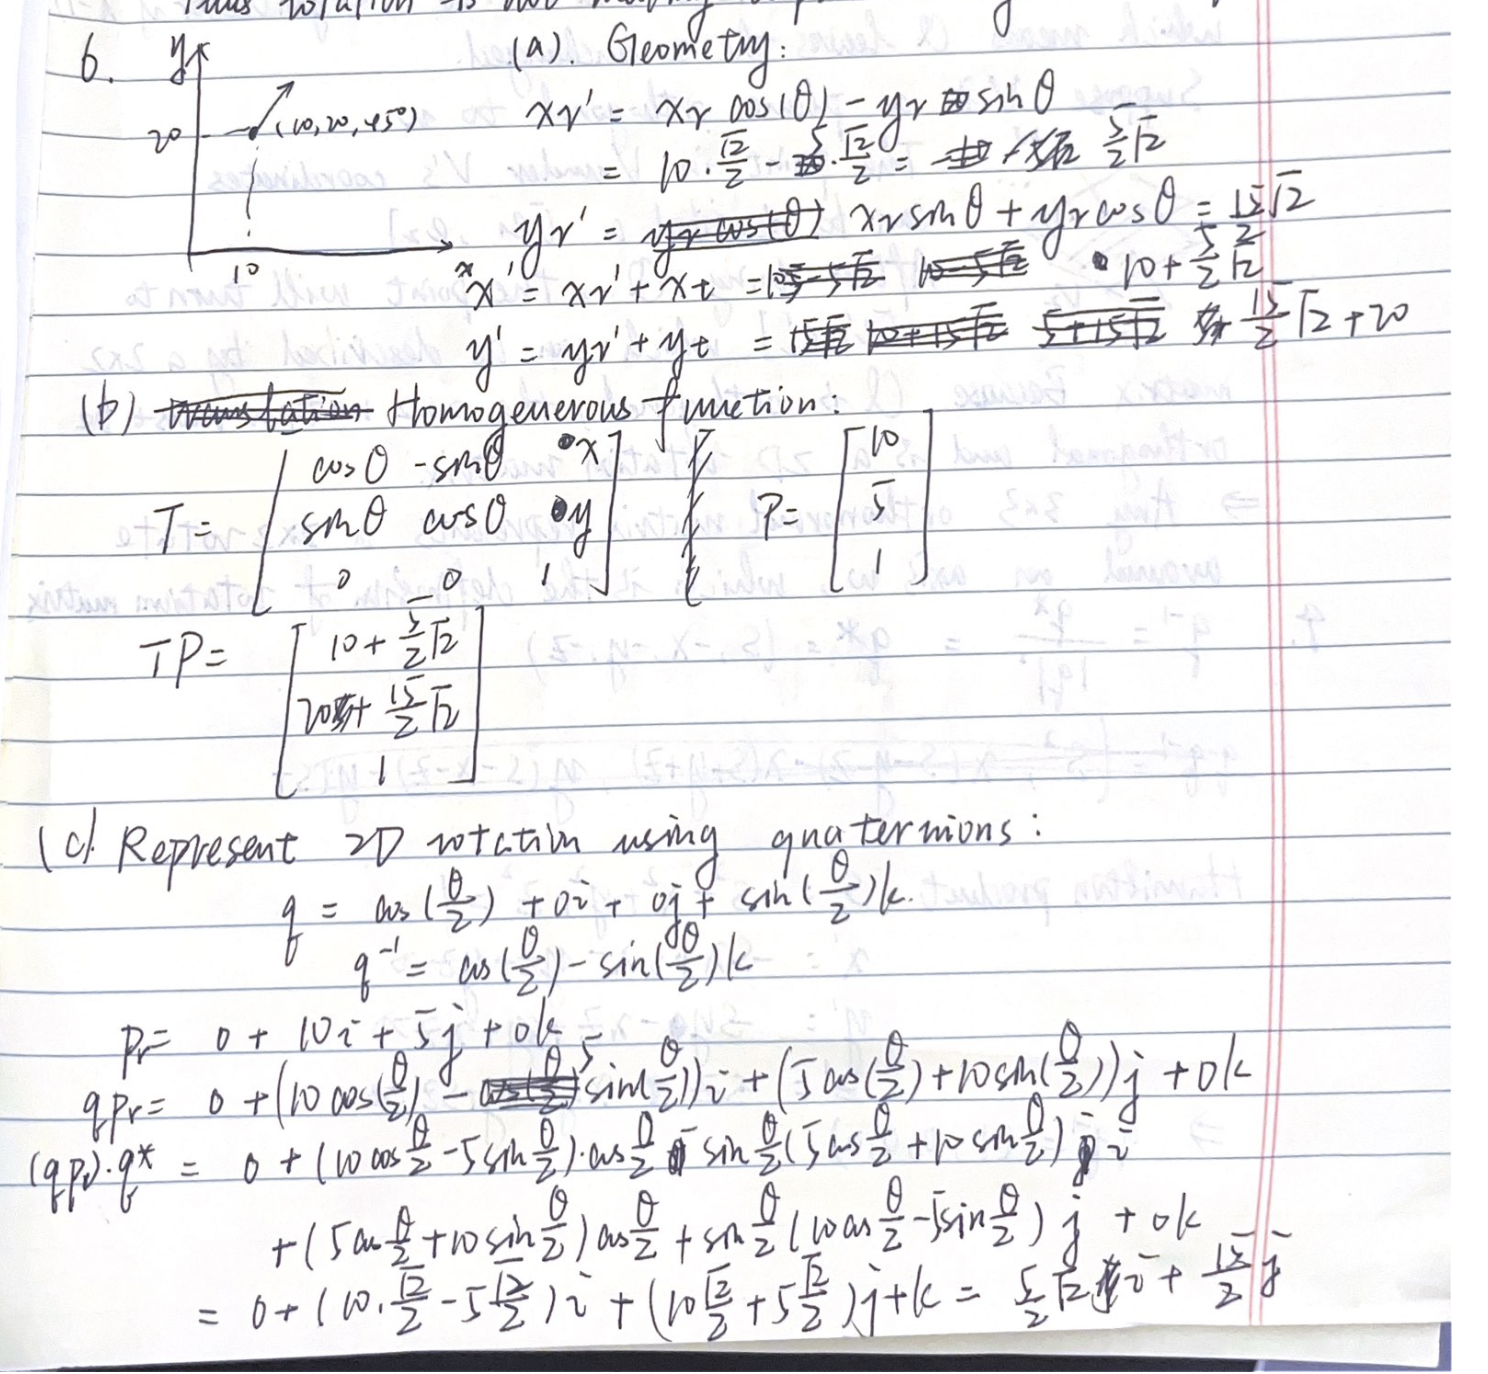 6. y (a). Geometry:
20 (10,20,45°) xr' = xr cos(θ) - yr sinθ
= 10·√2/2 - 5·√2/2 = 5/2√2
yr' = xr sinθ + yr cosθ = 15/2√2
10 x
x' = xr' + xt = 10 + 5/2√2
y' = yr' + yt = 15/2√2 + 20
(b) Homogenerous function:
T = [cosθ -sinθ x
sinθ cosθ y
0 0 1]
P = [10
5
1]
TP = [10 + 5/2√2
20 + 15/2√2
1]
(c) Represent 2D rotation using quaternions:
q = cos(θ/2) + 0i + 0j + sin(θ/2)k.
q⁻¹ = cos(θ/2) - sin(θ/2)k
Pr = 0 + 10i + 5j + 0k
qPr = 0 + (10 cos(θ/2) - 5 sin(θ/2))i + (5 cos(θ/2) + 10 sin(θ/2))j + 0k
(qPr)·q* = 0 + (10 cos θ/2 - 5 sin θ/2)·cos θ/2 - sin θ/2 (5 cos θ/2 + 10 sin θ/2) i
+ (5 cos θ/2 + 10 sin θ/2) cos θ/2 + sin θ/2 (10 cos θ/2 - 5 sin θ/2) j + 0k
= 0 + (10·√2/2 - 5 √2/2)i + (10 √2/2 + 5 √2/2)j + k = 5/2 √2 i + 15/2 j